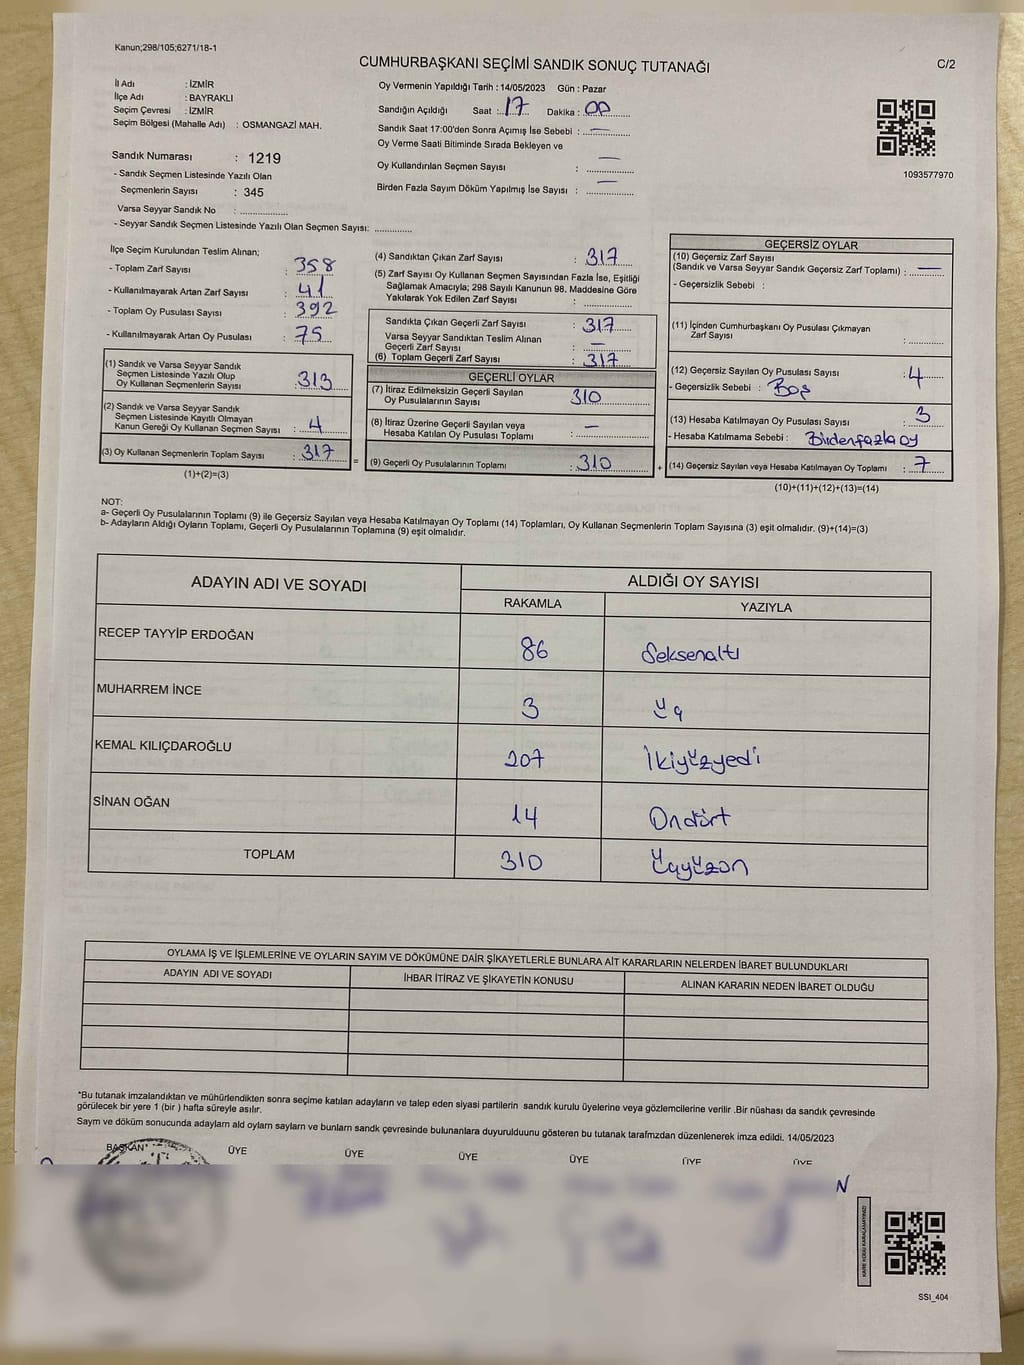 Kanun;298/105;6271/18-1
CUMHURBAŞKANI SEÇİMİ SANDIK SONUÇ TUTANAĞI
C/2
İl Adı : İZMİR
İlçe Adı : BAYRAKLI
Seçim Çevresi : İZMİR
Seçim Bölgesi (Mahalle Adı) : OSMANGAZİ MAH.
Oy Vermenin Yapıldığı Tarih : 14/05/2023 Gün : Pazar
Sandığın Açıldığı Saat :..17.... Dakika :..00.......
Sandık Saat 17:00'den Sonra Açımış İse Sebebi : ..—........
Oy Verme Saati Bitiminde Sırada Bekleyen ve
Oy Kullandırılan Seçmen Sayısı : —
Birden Fazla Sayım Döküm Yapılmış İse Sayısı : —
1093577970
Sandık Numarası : 1219
- Sandık Seçmen Listesinde Yazılı Olan
Seçmenlerin Sayısı : 345
Varsa Seyyar Sandık No : ..................
- Seyyar Sandık Seçmen Listesinde Yazılı Olan Seçmen Sayısı: ..............
İlçe Seçim Kurulundan Teslim Alınan;
- Toplam Zarf Sayısı : 358
- Kullanılmayarak Artan Zarf Sayısı : 41
- Toplam Oy Pusulası Sayısı : 392
- Kullanılmayarak Artan Oy Pusulası : 75
(1) Sandık ve Varsa Seyyar Sandık
Seçmen Listesinde Yazılı Olup
Oy Kullanan Seçmenlerin Sayısı : 313
(2) Sandık ve Varsa Seyyar Sandık
Seçmen Listesinde Kayıtlı Olmayan
Kanun Gereği Oy Kullanan Seçmen Sayısı : 4
(3) Oy Kullanan Seçmenlerin Toplam Sayısı : 317
(1)+(2)=(3)
=
(4) Sandıktan Çıkan Zarf Sayısı : 317
(5) Zarf Sayısı Oy Kullanan Seçmen Sayısından Fazla İse, Eşitliği
Sağlamak Amacıyla; 298 Sayılı Kanunun 98. Maddesine Göre
Yakılarak Yok Edilen Zarf Sayısı : ................
Sandıkta Çıkan Geçerli Zarf Sayısı : 317
Varsa Seyyar Sandıktan Teslim Alınan
Geçerli Zarf Sayısı : —
(6) Toplam Geçerli Zarf Sayısı : 317
GEÇERLİ OYLAR
(7) İtiraz Edilmeksizin Geçerli Sayılan
Oy Pusulalarının Sayısı 310
(8) İtiraz Üzerine Geçerli Sayılan veya
Hesaba Katılan Oy Pusulası Toplamı : —
(9) Geçerli Oy Pusulalarının Toplamı : 310
+
GEÇERSİZ OYLAR
(10) Geçersiz Zarf Sayısı
(Sandık ve Varsa Seyyar Sandık Geçersiz Zarf Toplamı) : —
- Geçersizlik Sebebi :
(11) İçinden Cumhurbaşkanı Oy Pusulası Çıkmayan
Zarf Sayısı : ..............
(12) Geçersiz Sayılan Oy Pusulası Sayısı : 4
- Geçersizlik Sebebi : Boş
(13) Hesaba Katılmayan Oy Pusulası Sayısı : 3
- Hesaba Katılmama Sebebi : Birden fazla oy
(14) Geçersiz Sayılan veya Hesaba Katılmayan Oy Toplamı : 7
(10)+(11)+(12)+(13)=(14)
NOT:
a- Geçerli Oy Pusulalarının Toplamı (9) ile Geçersiz Sayılan veya Hesaba Katılmayan Oy Toplamı (14) Toplamları, Oy Kullanan Seçmenlerin Toplam Sayısına (3) eşit olmalıdır. (9)+(14)=(3)
b- Adayların Aldığı Oyların Toplamı, Geçerli Oy Pusulalarının Toplamına (9) eşit olmalıdır.
ADAYIN ADI VE SOYADI ALDIĞI OY SAYISI
RAKAMLA YAZIYLA
RECEP TAYYİP ERDOĞAN 86 Seksenaltı
MUHARREM İNCE 3 Üç
KEMAL KILIÇDAROĞLU 207 İkiyüzyedi
SİNAN OĞAN 14 Ondört
TOPLAM 310 Üçyüzon
OYLAMA İŞ VE İŞLEMLERİNE VE OYLARIN SAYIM VE DÖKÜMÜNE DAİR ŞİKAYETLERLE BUNLARA AİT KARARLARIN NELERDEN İBARET BULUNDUKLARI
ADAYIN ADI VE SOYADI İHBAR İTİRAZ VE ŞİKAYETİN KONUSU ALINAN KARARIN NEDEN İBARET OLDUĞU
*Bu tutanak imzalandıktan ve mühürlendikten sonra seçime katılan adayların ve talep eden siyasi partilerin sandık kurulu üyelerine veya gözlemcilerine verilir .Bir nüshası da sandık çevresinde
görülecek bir yere 1 (bir ) hafta süreyle asılır.
Sayım ve döküm sonucunda adaylarn ald oylarn saylarn ve bunlarn sandk çevresinde bulunanlara duyurulduunu gösteren bu tutanak tarafmzdan düzenlenerek imza edildi. 14/05/2023
BAŞKAN ÜYE ÜYE ÜYE ÜYE ÜYE ÜYE
N
KARE KODU KARALAMAYINIZ!
SSI_404